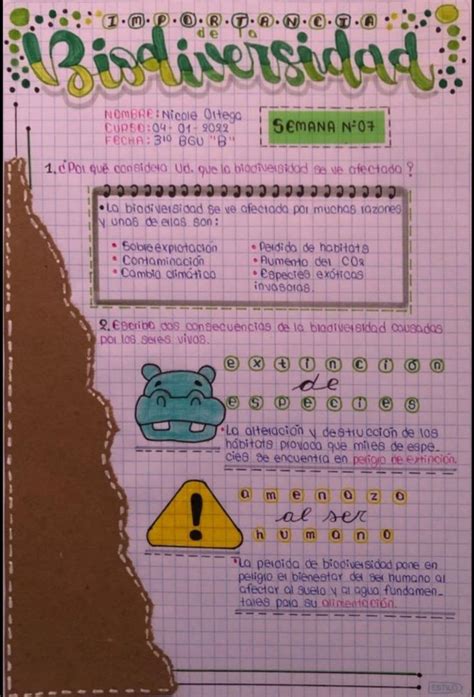 IMPORTANCIA
de la
Biodiversidad
NOMBRE: Nicole Ortega
CURSO: 04-01-2022
FECHA: 3ro BGU "B"
SEMANA Nº07
1. ¿Por qué considera Ud. que la biodiversidad se ve afectada?
• La biodiversidad se ve afectada por muchas razones
y unas de ellas son:
• Sobreexplotación
• Contaminación
• Cambio climático
• Perdida de hábitats
• Aumento del CO2
• Especies exóticas
invasoras.
2. Escriba dos consecuencias de la biodiversidad causadas
por los seres vivos.
extinción
de
especies
• La alteración y destrucción de los
hábitats provoca que miles de espe-
cies se encuentra en peligro de extinción.
amenazo
al ser
humano
• La perdida de biodiversidad pone en
peligro el bienestar del ser humano al
afectar al suelo y al agua fundamen-
tales para su alimentación.